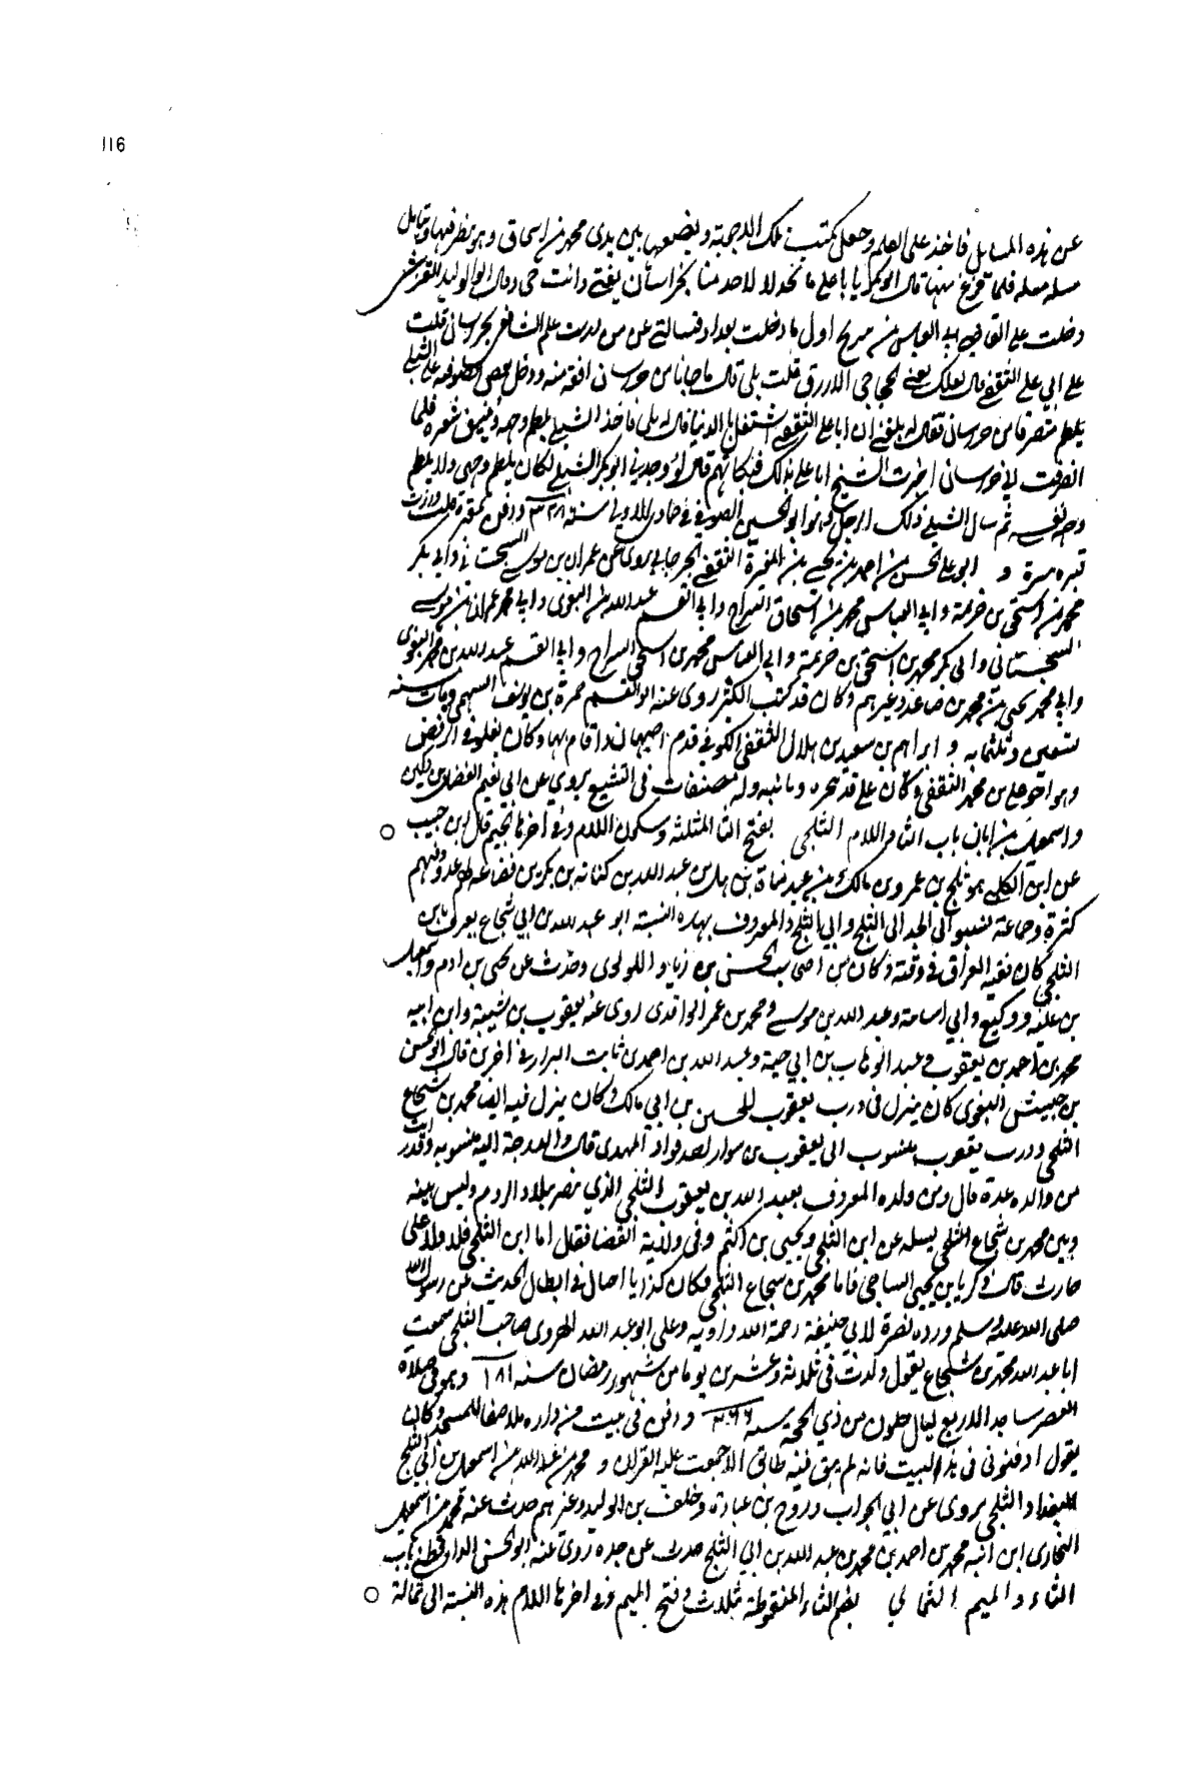 116
عن هذه المسايل فاخذ على القلم وجعل يكتب تلك الاجوبة ويضعها بين يدى محمد بن اسحاق وهو ينظر فيها ويتامل
مسله مسله فلما فرغ منها قال ابو بكر يا ابا على ما نحد لا لاحد منا بخراسان يفتى وانت حى وقال ابو الوليد القرشى
دخلت على القاضى ابى العباس بن سريج اول ما دخلت بغداد فسالنى عن من درست علم الشافعى بخراسان قلت
على ابى على الثقفى قال لعلك تعنى الحجاجى الازرق قلت بلى قال ما جانا من خراسان افقه منه ودخل بعض الصوفيه على الشبلى
يلطم منصرفا من خراسان فقال له بلغنى ان ابا على الثقفى اشتغل بالدنيا قال بلى فاخذ الشبلى يلطم وجهه وينتف شعره فلما
انصرفت الى خراسان اخبرت الشيخ ابا على بذلك فبكا ثم قال لو وجدنا ابو بكر الشبلى لكان يلطم وجهى ولا يلطم
وجه نفسه ثم سال الشبلى ذلك الرجل وهو ابو الحسين الصوفى فى جمادى الاولى سنة ٣٢٨ ودفن بمقبرة وزرت
قبره مرة و ابو على الحسن بن احمد بن يحيى بن المغيرة الثقفى الجرجانى يروى عن عمران بن موسى السختيانى وابى بكر
محمد بن اسحق بن خزيمة وابى العباس محمد بن اسحاق السراج وابى القسم عبد الله بن البغوى وابى محمد عمران بن موسى
السجستانى وابى بكر محمد بن اسحق بن خزيمة وابى العباس محمد بن اسحق السراج وابى القسم عبد الله بن محمد البغوى
وابى محمد يحيى بن محمد بن صاعد وغيرهم وكان قد كتب الكثير روى عنه ابو القسم حمزة بن يوسف السهمى ومات سنه
تسعين وثلثمايه و ابراهيم بن سعيد بن هلال الثقفى الكوفى قدم اصبهان واقام بها وكان يغلو فى الرفض
وهو اخو على بن محمد الثقفى وكان على قد هجره وباينه وله مصنفات فى التشيع يروى عن ابى نعيم الفضل بن دكين
واسمعيل بن ابان باب الثا واللام الثلجى بفتح الثا المثلثة وسكون اللام وفى اخرها الجيم قال ابن حبيب
عن ابن الكلبى هو ثلج بن عمرو بن مالك بن عبد مناة بن هبل بن عبد الله بن كنانه بن بكر بن قضاعه لهم عدد ومنهم
كثرة وجماعة نسبوا الى الجد الى الثلج وابى الثلج والمعروف بهذه النسبة ابو عبد الله بن ابى شجاع يعرف بابن
الثلجى كان فقيه العراق فى وقته وكان من اصحاب الحسن بن زياد اللولوى وحدث عن يحيى بن ادم واسمعيل
بن علية ووكيع وابى اسامة وعبد الله بن موسى ومحمد بن عمر الواقدى روى عنه يعقوب بن شيبة وابن ابنه
محمد بن احمد بن يعقوب وعبد الوهاب بن ابى حية وعبد الله بن احمد بن ثابت البزار فى اخرين قال ابو الحسن
بن حبيش البغوى كان ينزل فى درب يعقوب الحسن بن ابى مالك وكان ينزل فيه ايضا محمد بن شجاع
الثلجى ودرب يعقوب منسوب الى يعقوب بن سوار احد قواد المهدى قال والعدجة اليه منسوبه وقد رايت
من والده عدة قال ومن ولده المعروف بعبد الله بن يعقوب الثلجى الذى تنصر ببلاد الروم وليس بينه
وبين محمد بن شجاع الثلجى يسله عن ابن الثلجى ويحيى بن اكثم وفى ولاية القضا فقال اما ابن الثلجى فلا ولا على
حارث قال زكريا بن يحيى الساجى فاما محمد بن شجاع الثلجى فكان كذابا احتال فى ابطال الحديث عن رسول الله
صلى الله عليه وسلم ورده نصرة لابى حنيفة رحمة الله ورايه وعلى ابو عبد الله الهروى صاحب الثلجى سمعت
ابا عبد الله محمد بن شجاع يقول ولدت فى ثلاثه وعشرين يوما من شهر رمضان سنه ١٨١ وهو فى صلاة
العصر ساجد الاربع ليال خلون من ذى الحجة سنه ٢٦٦ ودفن فى بيت من داره ملاصقا للمسجد وكان
يقول ادفنونى فى هذا البيت فانه لم يبق فيه طاق الا ختمت عليه القران و محمد بن عبد الله بن اسمعيل بن ابى الثلج
البغداد الثلجى يروى عن ابى الجواب وروح بن عبادة وخلف بن الوليد وغيرهم حدث عنه محمد بن اسمعيل
البخارى ابن ابنه محمد بن احمد بن محمد بن عبد الله بن ابى الثلج حدث عن جده روى عنه ابو الحسن الدارقطنى باب
الثاء والميم الثمالى بضم الثاء المنقوطة بثلاث وفتح الميم وفى اخرها اللام هذه النسبة الى ثمالة